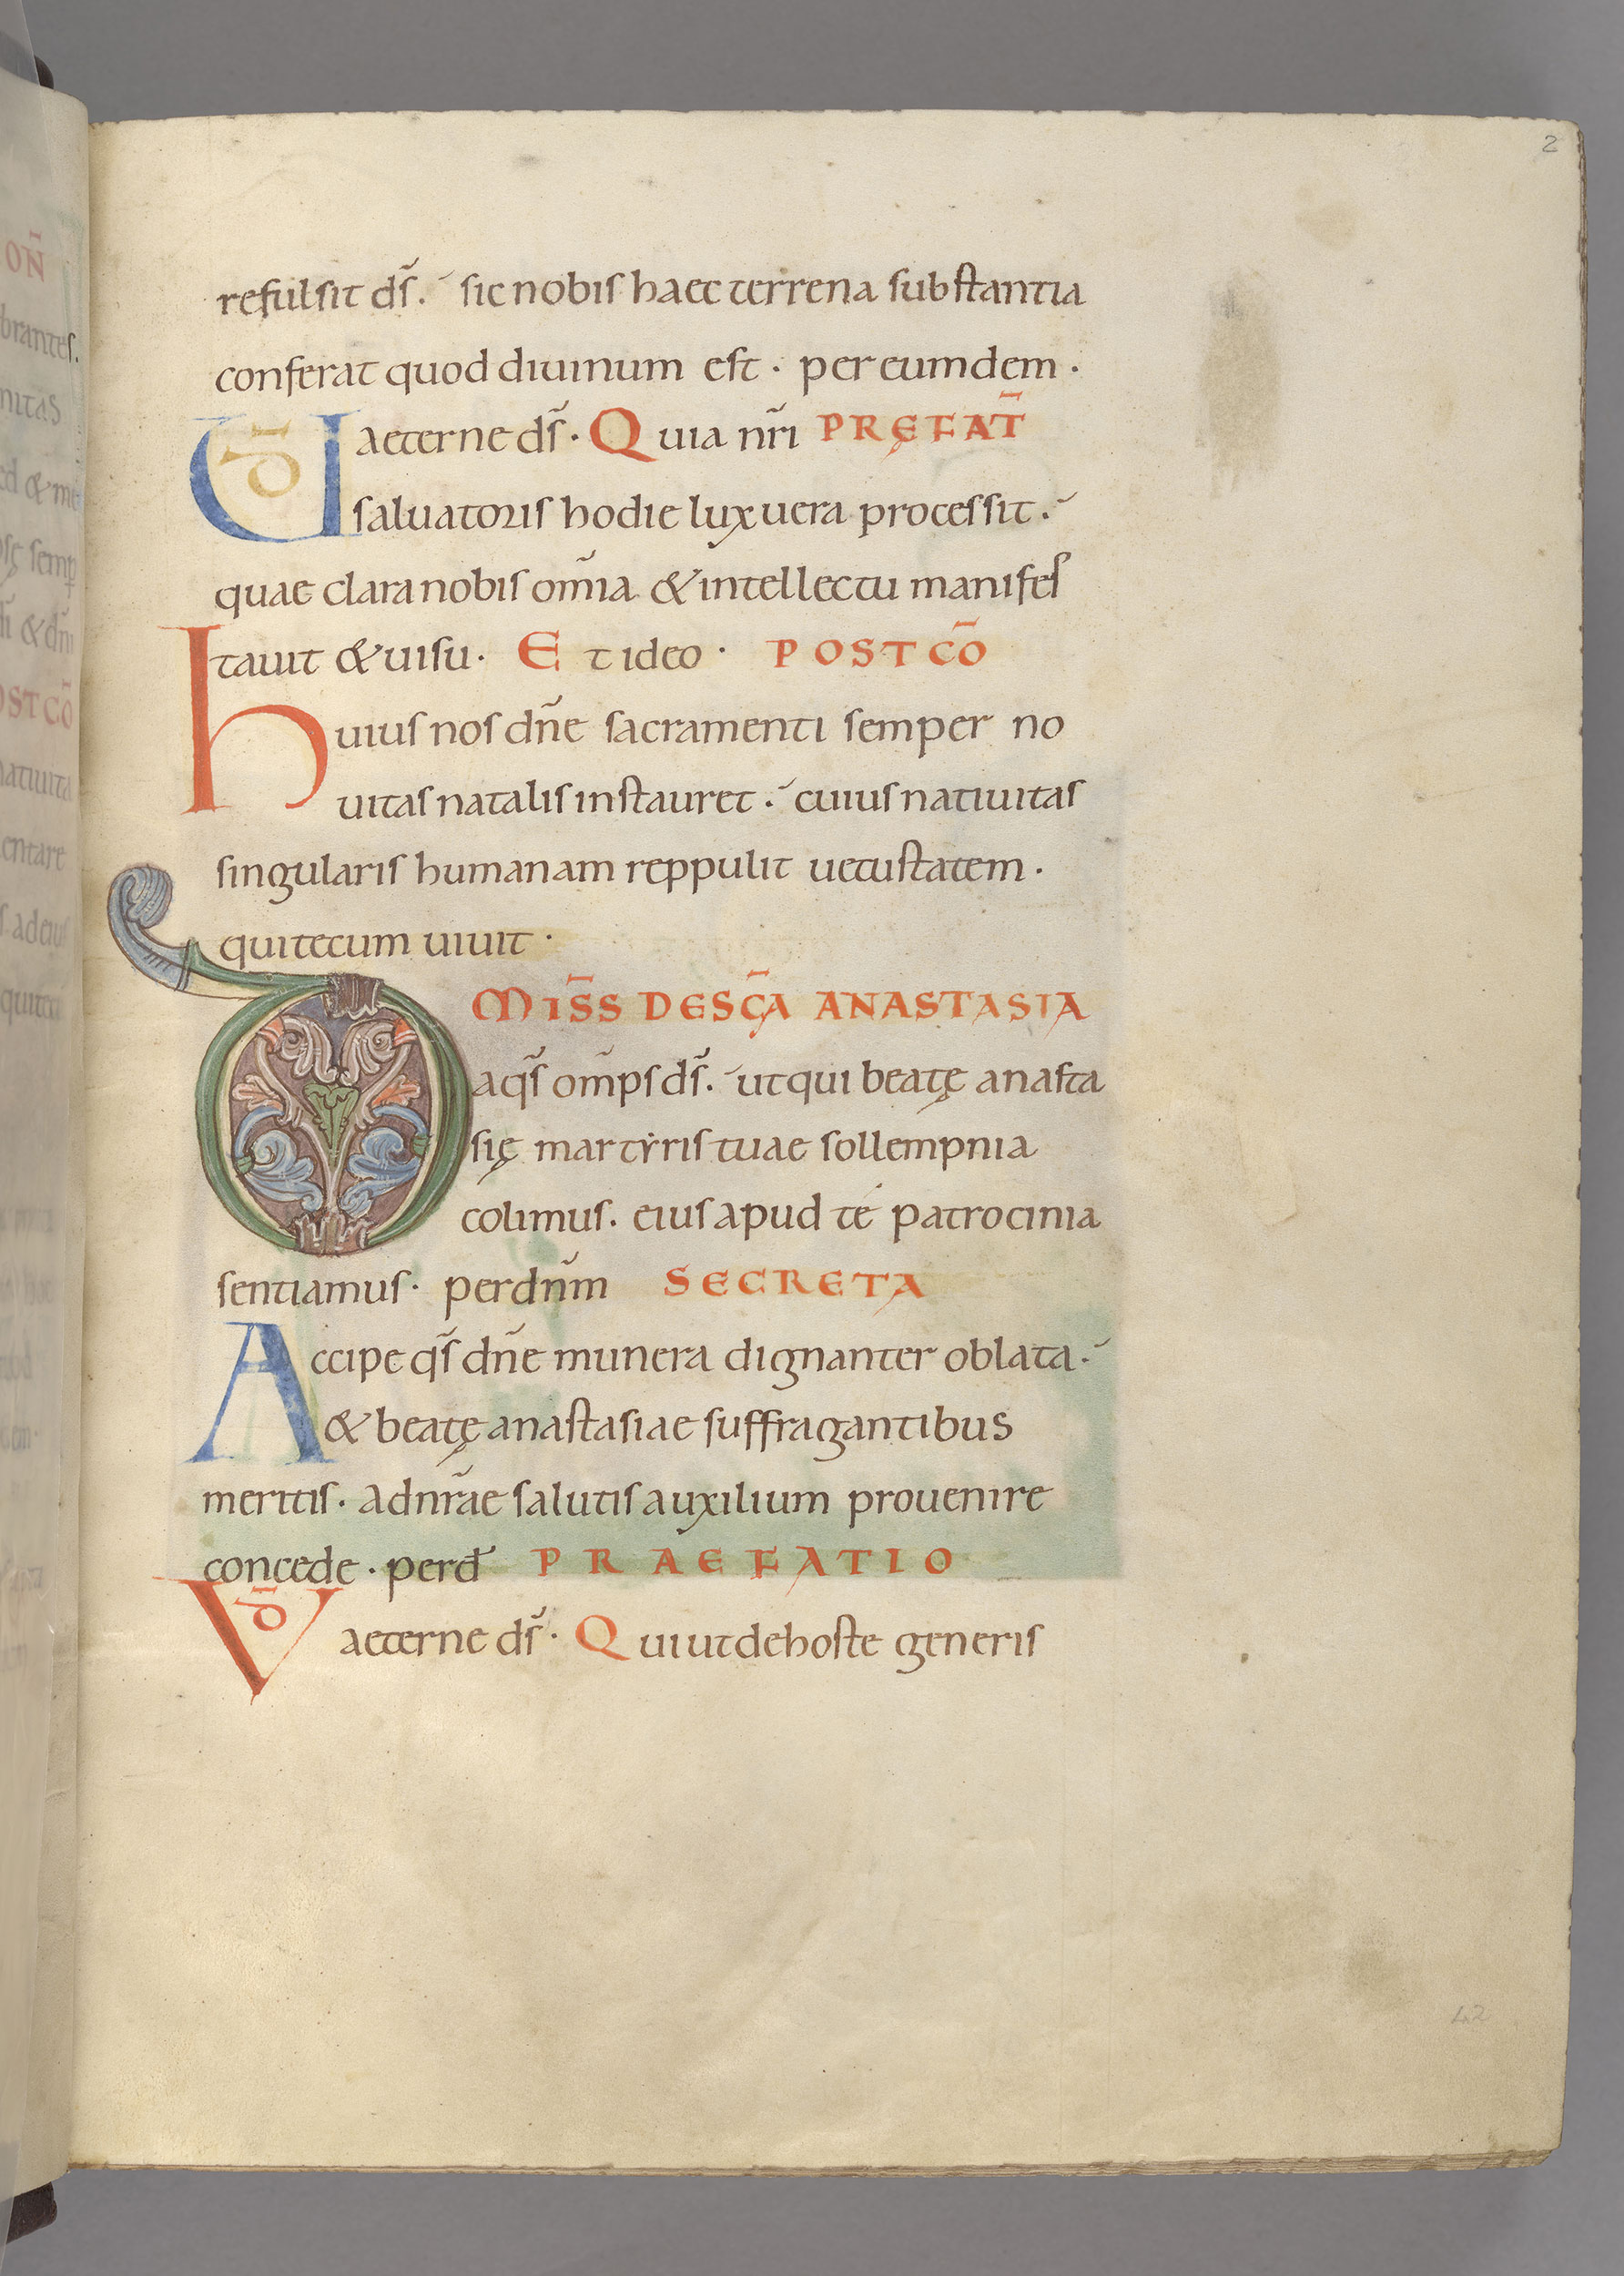 2
refulsit dս̄. sic nobis haec terrena substantia
conferat quod diuinum est · per eumdem ·
Ud̄ aeterne ds̄ · Quia nr̄i PRĘFAT̄
saluatoris hodie lux uera processit ·
quae clara nobis om̄ia & intellectu manifes
tauit & uisu · Et ideo · POST CŌ
huius nos dn̄e sacramenti semper no
uitas natalis instauret · cuius natiuitas
singularis humanam reppulit uetustatem ·
qui tecum uiuit ·
MIS̄S DE SC̄A ANASTASIA
Da qs̄ om̄ps ds̄ · ut qui beatę anasta
się martẏris tuae sollempnia
colimus · eius apud té patrocinia
sentiamus · per dn̄m SECRETA
Accipe qs̄ dn̄e munera dignanter oblata ·
& beatę anastasiae suffragantibus
meritis · ad nr̄ae salutis auxilium prouenire
concede · per d̄ PRAEFATIO
Vd̄ aeterne ds̄ · Qui ut de hoste generis
42